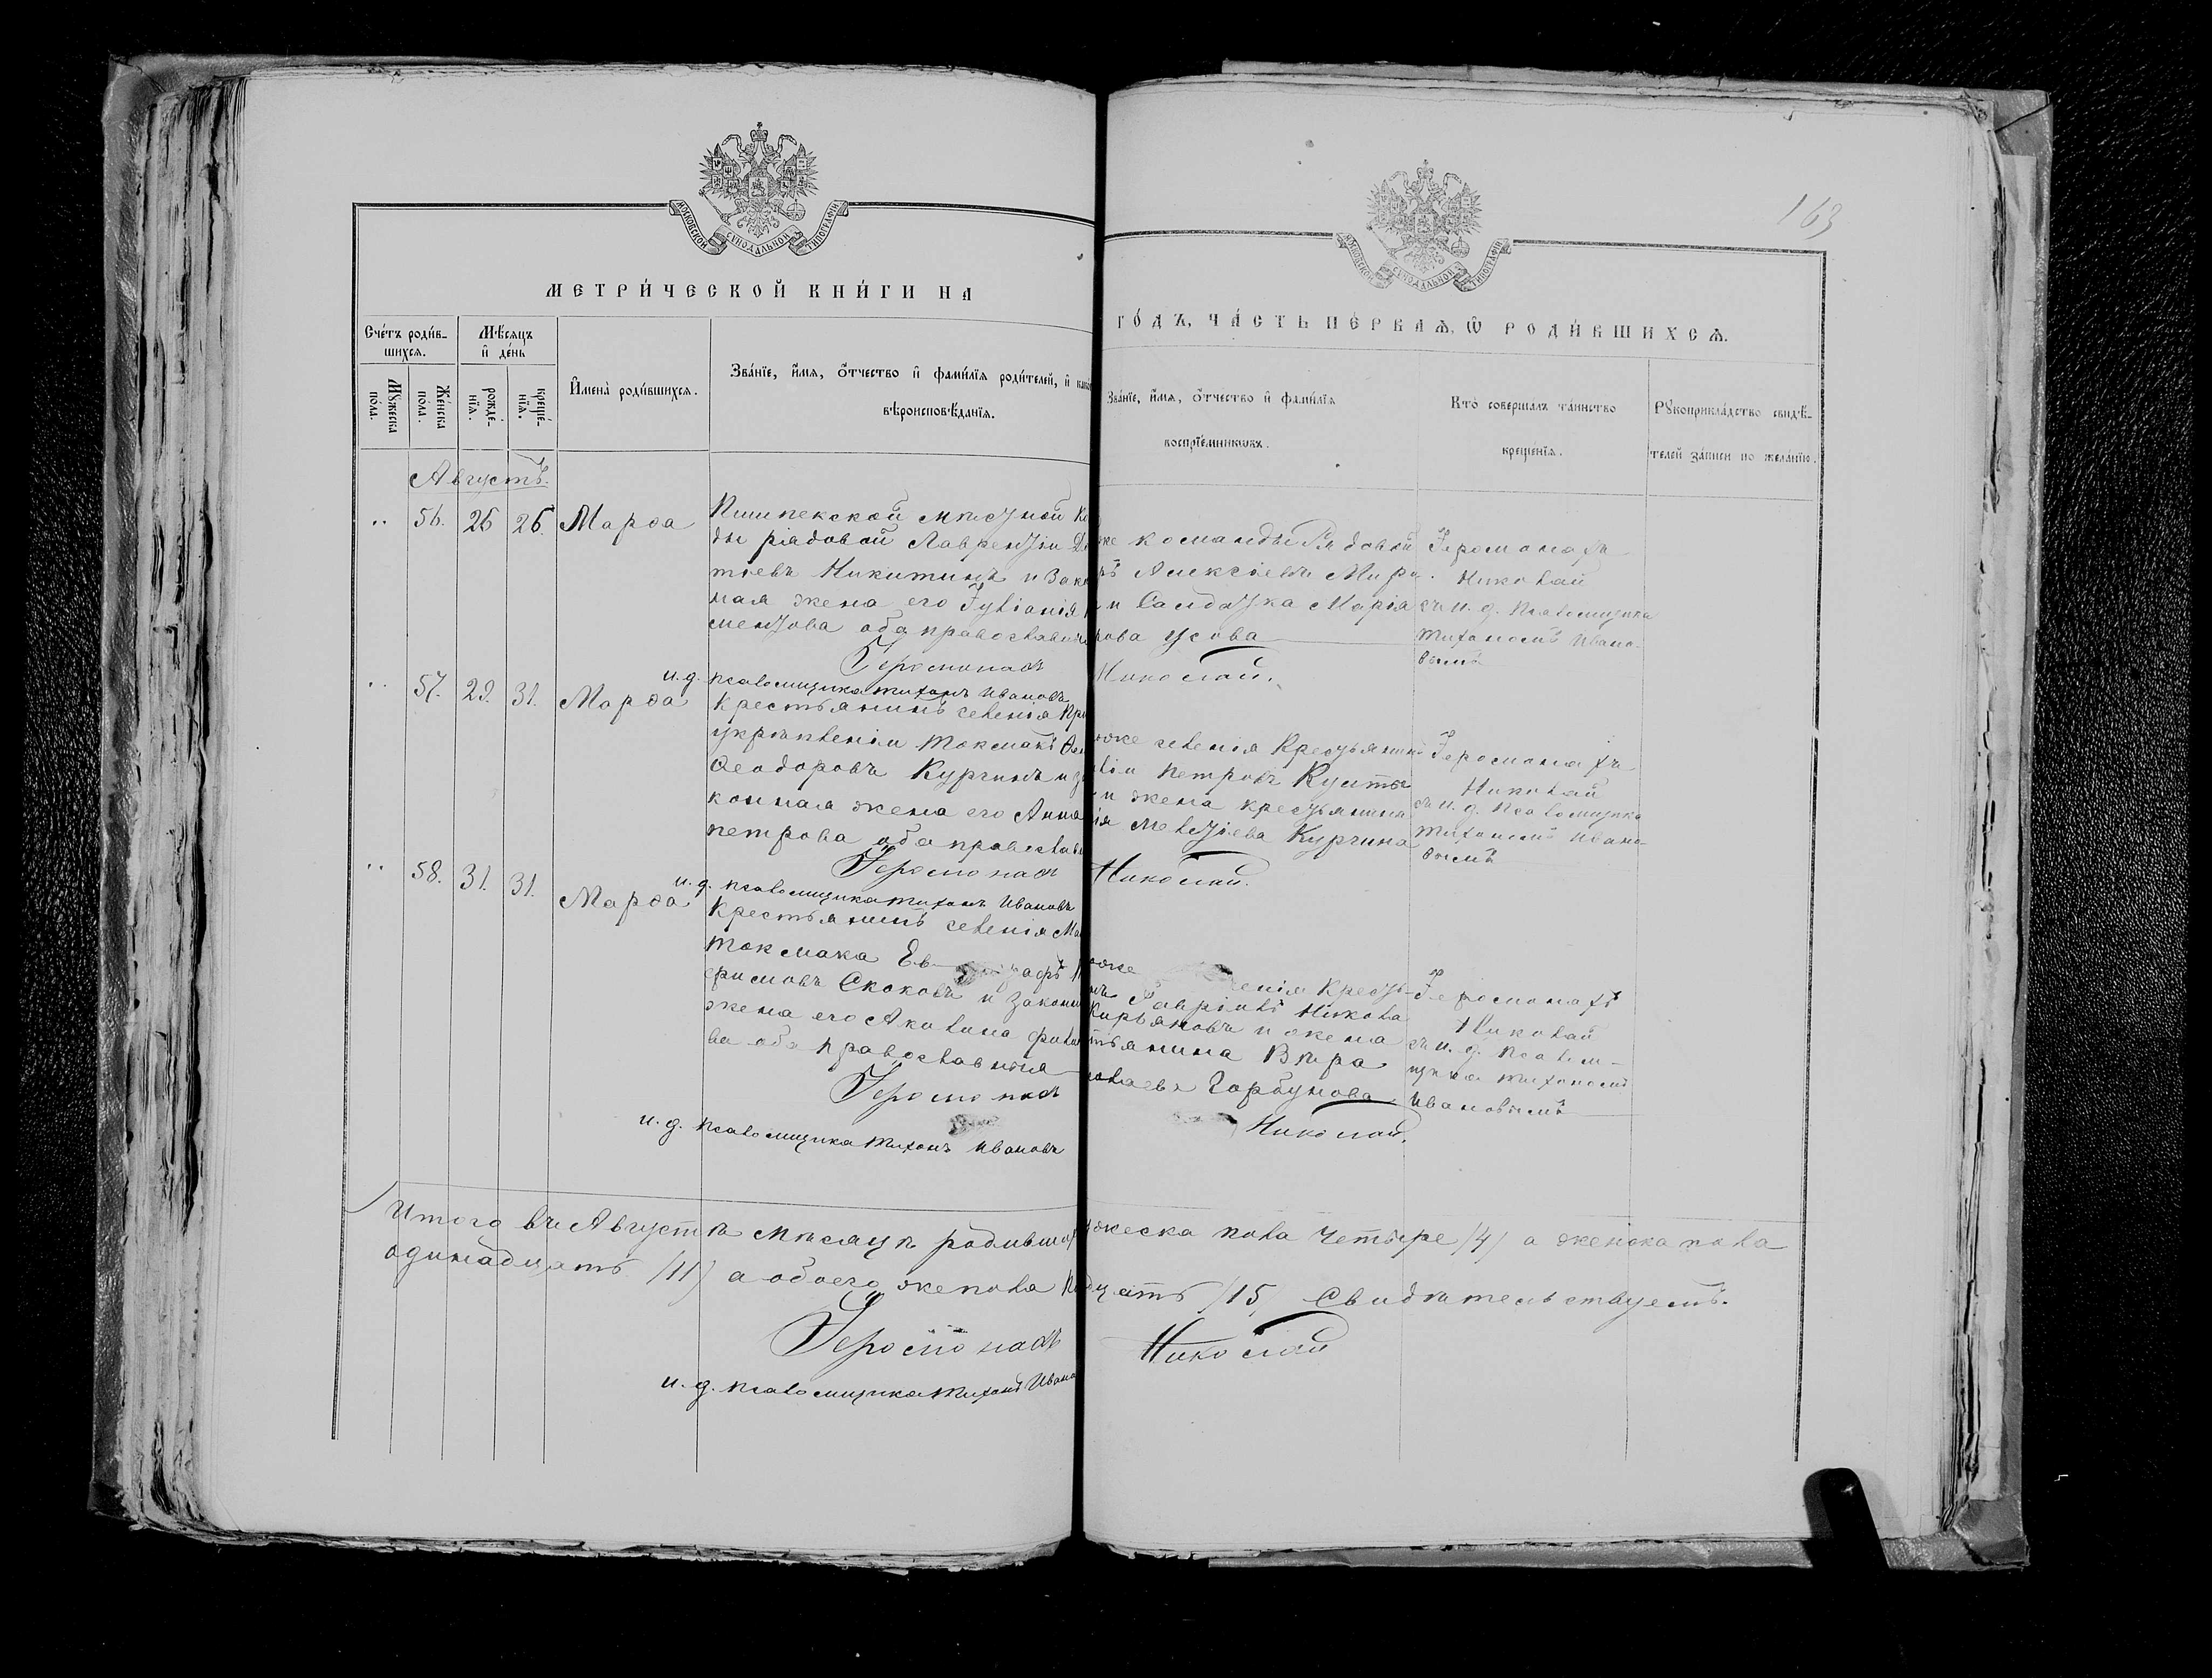 163
МОСКОВСКОЙ СУНОДАЛЬНОЙ ТИПОГРАФІИ
МОСКОВСКОЙ СУНОДАЛЬНОЙ ТИПОГРАФІИ
МЕТРИ́ЧЕСКОЙ КНИ́ГИ НА
ГО́ДЪ, ЧА́СТЬ ПЕ́РВАѦ, Ѽ РОДИ́ВШИХСѦ.
Сче́тъ роди́в-
шихсѧ.
Мѣ́сѧцъ
и҆ де́нь
Мꙋ́жеска
по́ла.
Же́нска
по́ла.
рожде́-
нїѧ.
креще́-
нїѧ.
И҆мена̀ роди́вшихсѧ.
Зва́нїе, и҆́мѧ, ѻ҆́тчество и҆ фами́лїѧ роди́телей, и҆
вѣроисповѣ́данїѧ.
Зва́нїе, и҆́мѧ, ѻ҆́тчество и҆ фами́лїѧ
воспрїе́мникѡвъ.
Кто̀ соверша́лъ та́инство
креще́нїѧ.
Рꙋкоприкла́дство свидѣ́-
телей за́писи по жела́нїю.
Августъ.
56. 26 26. Марѳа
Пишпекской мѣстной
ды рядовой Лаврентіи
тіевъ Никитинъ и
ная жена его Іуліанія
ментова оба православны
же команды Рядовой
Алексіевъ
и Солдатка Марія
рова Усова
Іеромонахъ
Николай
съ и. д. Псаломщика
Тихономъ Ивано-
вымъ
Іеромонахъ Николай.
и. д. псаломщика Тихонъ Ивановъ
57. 29. 31. Марѳа
Крестьянинъ селенія
укрѣпленіи Токмакъ
Ѳеодоровъ Кургинъ и за
конная жена его Анна
петрова оба православ
тоже селенія Крестьянинъ
Петровъ
и жена крестьянина
Мелетіева Кургина
Іеромонахъ
Николай
съ и. д. Псаломщика
Тихономъ Ивано-
вымъ
Іеромонахъ Николай.
и. д. псаломщика Тихонъ Ивановъ
58. 31. 31. Марѳа
Крестьянинъ селенія
Токмака
фимовъ Скоковъ и законн
жена его Акилина
ва оба православныя
тоже
ленія Кресть-
Гавріилъ Никола
Кирьяновъ и жена
тьянина Вѣра
Горбунова
Іеромонахъ
Николай
съ и. д. Псалом-
щика Тихономъ
Ивановымъ
Іеромонахъ Николай.
и. д. псаломщика Тихонъ Ивановъ
Итого въ Августѣ мѣсяцѣ родивших
жеска пола четыре /4/ а женска пола
одинадцать /11/ а обоего же пола
дцать /15/ Свидѣтельствуемъ.
Іеромонахъ Николай
и. д. псаломщика Тихонъ Ивано